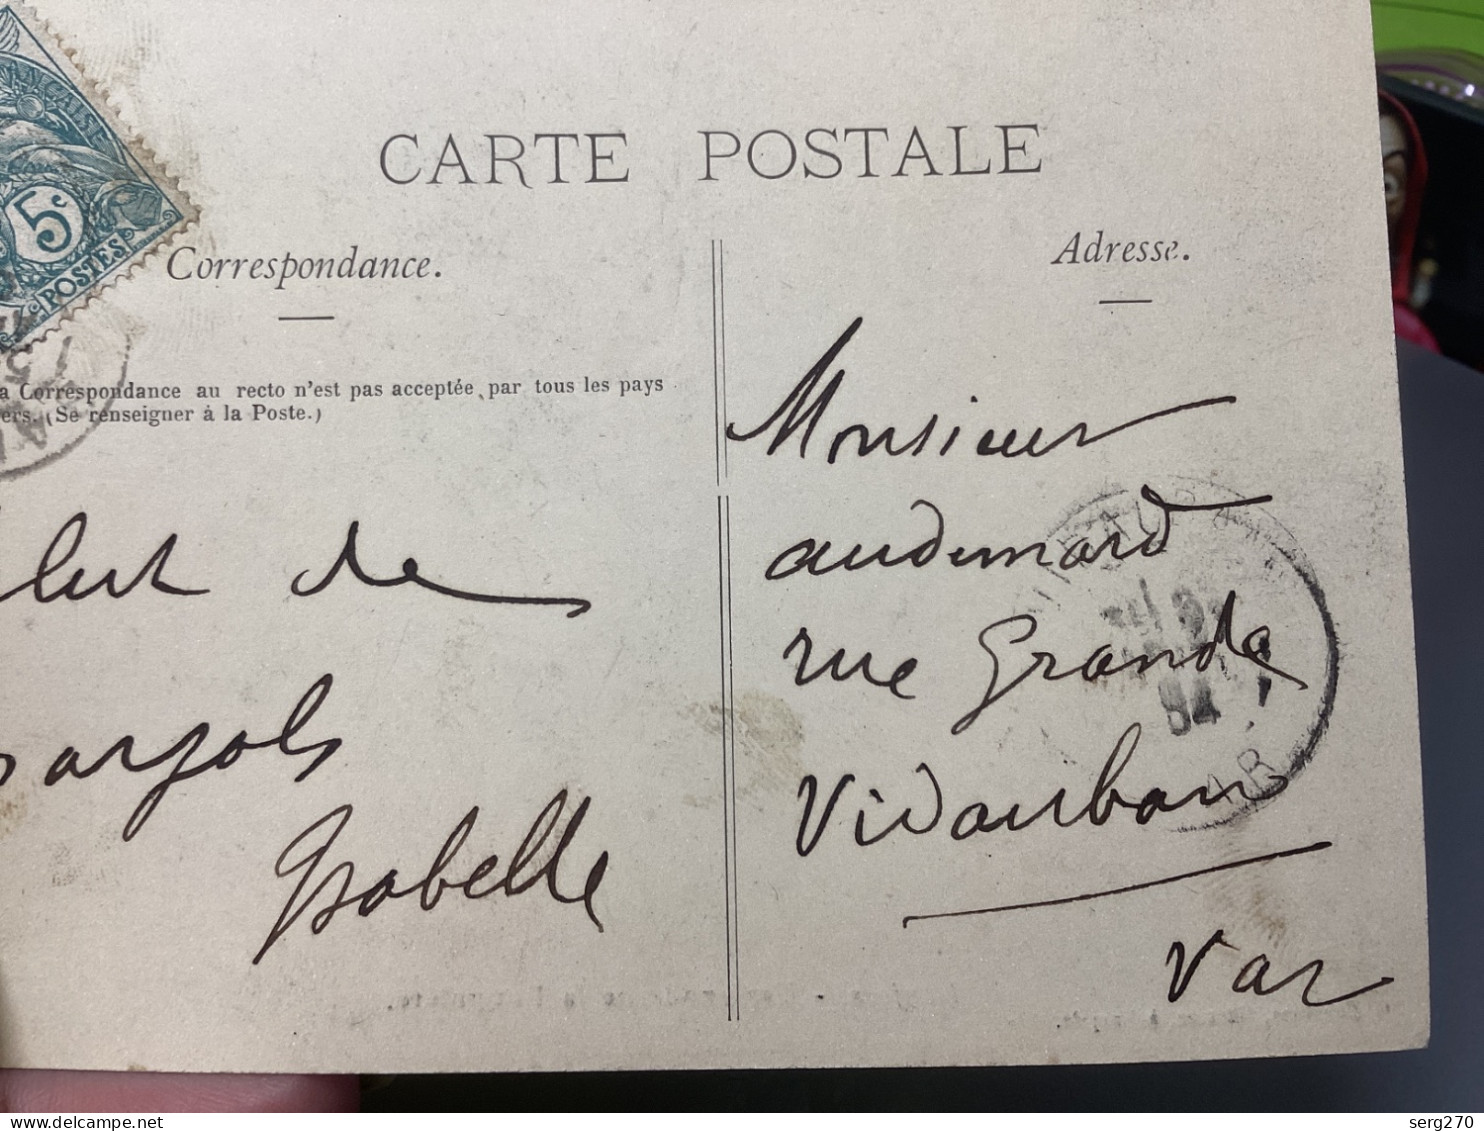 CARTE POSTALE
ANÇAISE
5c
POSTES
Correspondance.
a Correspondance au recto n'est pas acceptée par tous les pays
ers. (Se renseigner à la Poste.)
alut de
Bargols
Isabelle
Adresse.
Monsieur
audemard
rue Grande
Vidauban
Var
serg270